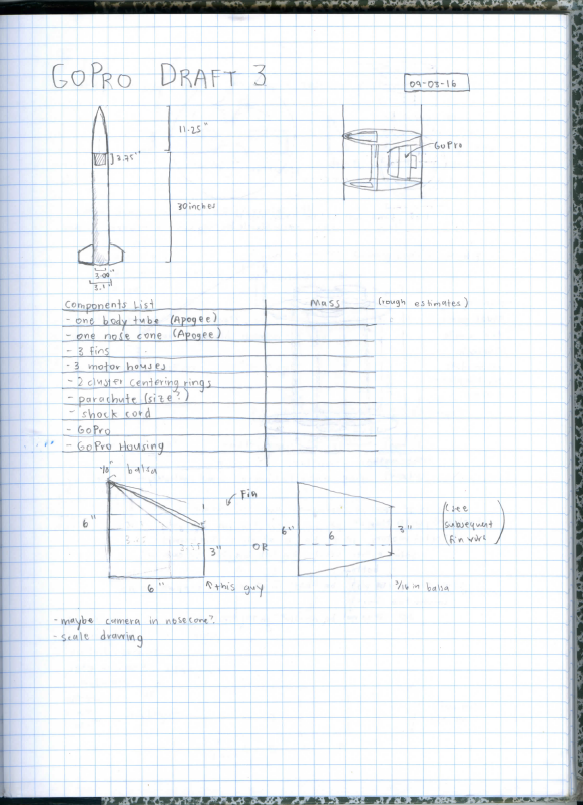 GOPRO DRAFT 3
09-03-16
11.25"
3.75"
GoPro
30 inches
3.00"
3.1"
Components List
Mass (rough estimates)
- one body tube (Apogee)
- one nose cone (Apogee)
- 3 fins
- 3 motor houses
- 2 cluster centering rings
- parachute (size?)
- shock cord
- GoPro
- GoPro Housing
balsa
Fin
6"
3"
6"
↖ this guy
OR
6"
6
3"
3/16 in balsa
(see
subsequent
fin work)
- maybe camera in nosecone?
- scale drawing